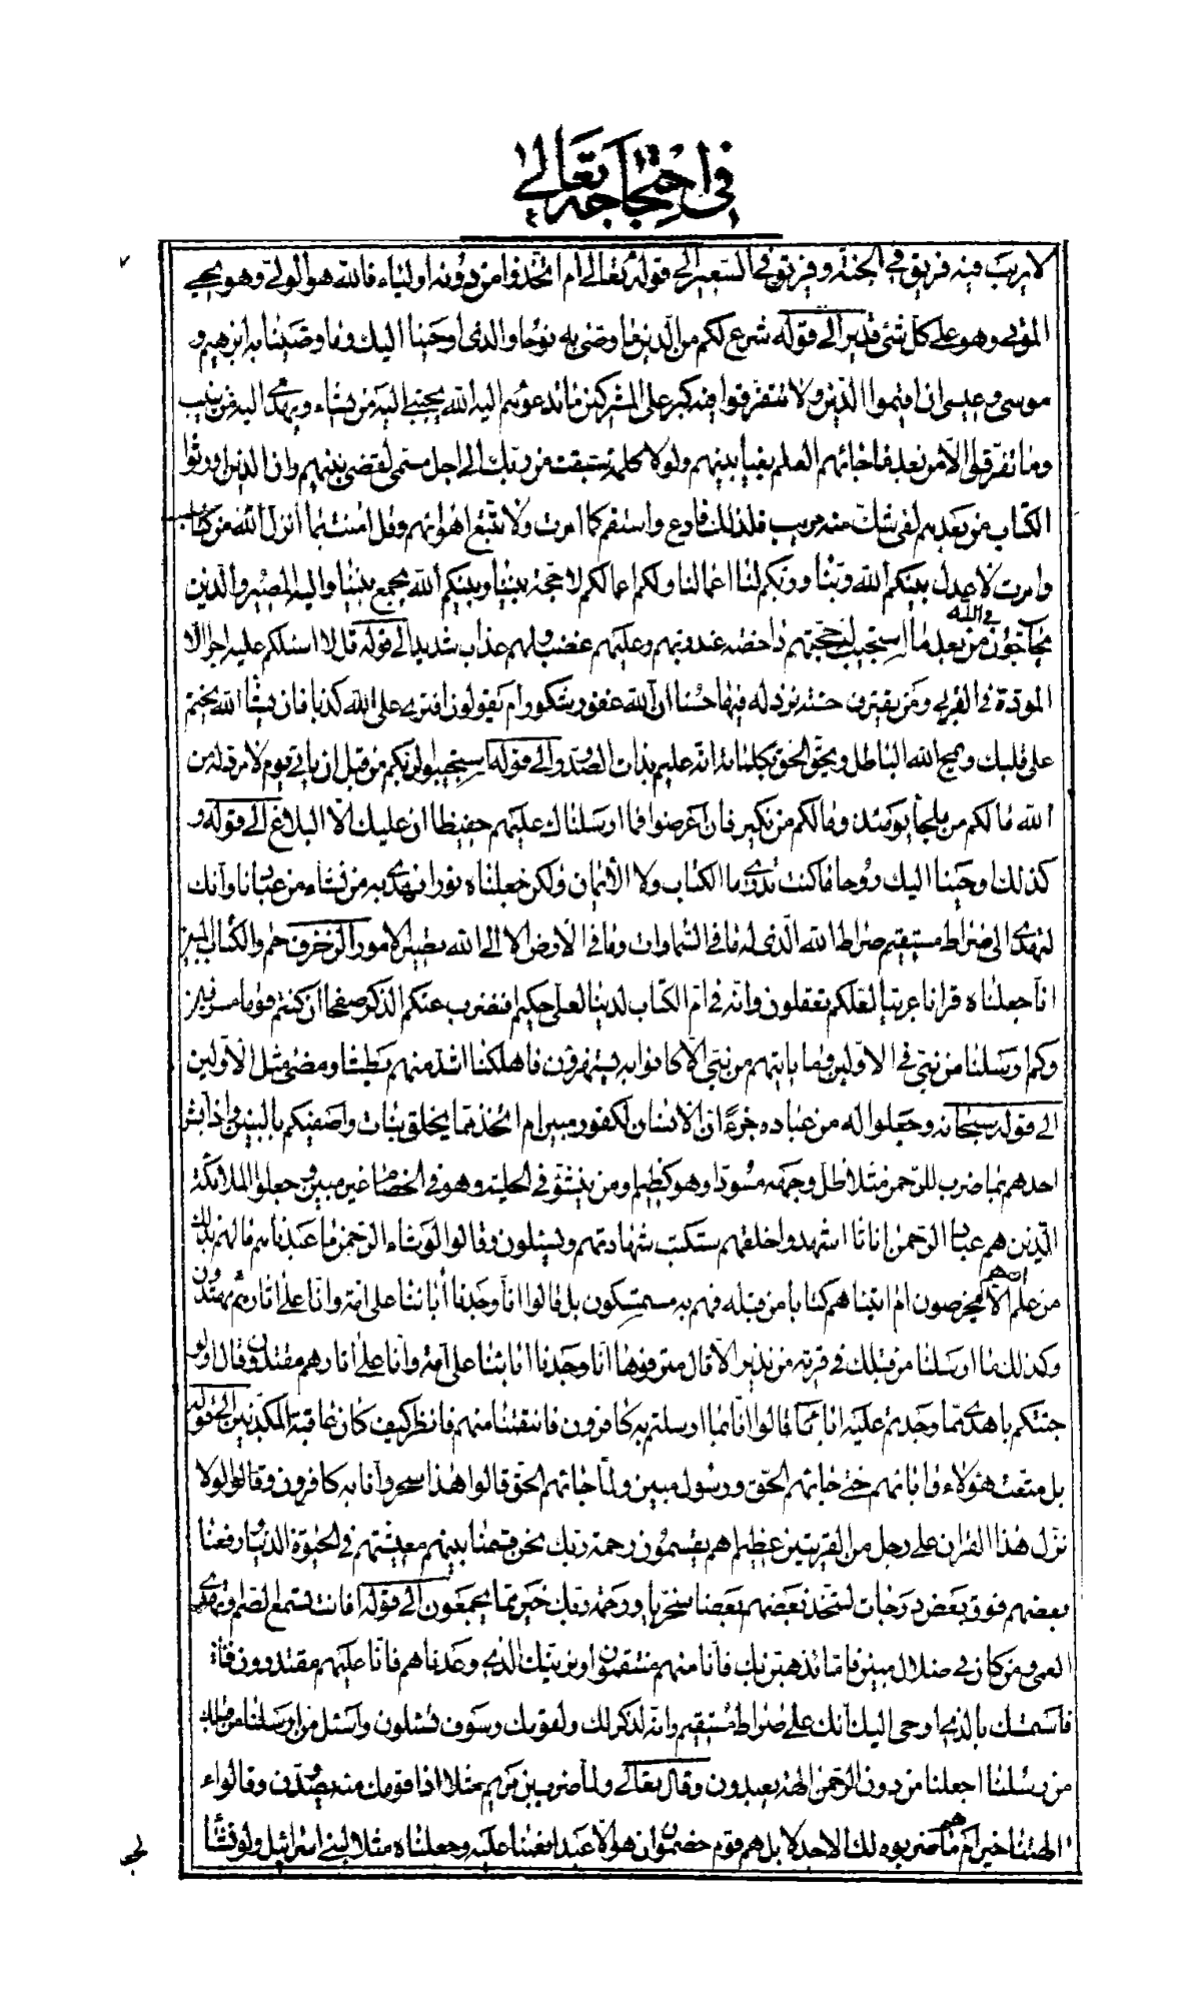 في احتجاجه تعالى
لا ريب فيه فريق في الجنة وفريق في السعير إلى قوله تعالى ام اتخذوا من دونه اولياء فالله هو الولي وهو يحيي
الموتى وهو على كل شئ قدير إلى قوله شرع لكم من الدين ما وصى به نوحا والذي اوحينا اليك وما وصينا به ابرهيم و
موسى وعيسى ان اقيموا الدين ولا تتفرقوا فيه كبر على المشركين ما تدعوهم اليه الله يجتبي اليه من يشاء ويهدي اليه من ينيب
وما تفرقوا الا من بعد ما جائهم العلم بغيا بينهم ولولا كلمة سبقت من ربك الى اجل مسمى لقضي بينهم وان الذين اورثوا
الكتاب من بعدهم لفي شك منه مريب فلذلك فادع واستقم كما امرت ولا تتبع اهوائهم وقل امنت بما انزل الله من كتاب
وامرت لاعدل بينكم الله ربنا وربكم لنا اعمالنا ولكم اعمالكم لا حجة بيننا وبينكم الله يجمع بيننا واليه المصير والذين
يحاجون في الله من بعد ما استجيب له حجتهم داحضة عند ربهم وعليهم غضب ولهم عذاب شديد إلى قوله قل لا اسئلكم عليه اجرا الا
المودة في القربى ومن يقترف حسنة نزد له فيها حسنا ان الله غفور شكور ام يقولون افترى على الله كذبا فان يشأ الله يختم
على قلبك ويمح الله الباطل ويحق الحق بكلماته انه عليم بذات الصدور إلى قوله استجيبوا لربكم من قبل ان ياتي يوم لا مرد له من
الله ما لكم من ملجأ يومئذ وما لكم من نكير فان اعرضوا فما ارسلناك عليهم حفيظا ان عليك الا البلاغ إلى قوله و
كذلك اوحينا اليك روحا ما كنت تدري ما الكتاب ولا الايمان ولكن جعلناه نورا نهدي به من نشاء من عبادنا وانك
لتهدي الى صراط مستقيم صراط الله الذي له ما في السماوات وما في الارض الا الى الله تصير الامور الزخرف حم والكتاب المبين
انا جعلناه قرانا عربيا لعلكم تعقلون وانه في ام الكتاب لدينا لعلي حكيم افنضرب عنكم الذكر صفحا ان كنتم قوما مسرفين
وكم ارسلنا من نبي في الاولين وما ياتيهم من نبي الا كانوا به يستهزؤن فاهلكنا اشد منهم بطشا ومضى مثل الاولين
إلى قوله سبحانه وجعلوا له من عباده جزءً ان الانسان لكفور مبين ام اتخذ مما يخلق بنات واصفيكم بالبنين واذا بشر
احدهم بما ضرب للرحمن مثلا ظل وجهه مسودا وهو كظيم اومن ينشؤ في الحلية وهو في الخصام غير مبين وجعلوا الملائكة
الذين هم عباد الرحمن اناثا اشهدوا خلقهم ستكتب شهادتهم ويسئلون وقالوا لو شاء الرحمن ما عبدناهم ما لهم بذلك
من علم ان هم الا يخرصون ام اتيناهم كتابا من قبله فهم به مستمسكون بل قالوا انا وجدنا اباءنا على امة وانا على اثارهم مهتدون
وكذلك ما ارسلنا من قبلك في قرية من نذير الا قال مترفوها انا وجدنا اباءنا على امة وانا على اثارهم مقتدون قال اولو
جئتكم باهدى مما وجدتم عليه اباءكم قالوا انا بما ارسلتم به كافرون فانتقمنا منهم فانظر كيف كان عاقبة المكذبين إلى قوله
بل متعت هؤلاء واباءهم حتى جائهم الحق ورسول مبين ولما جائهم الحق قالوا هذا سحر وانا به كافرون وقالوا لولا
نزل هذا القران على رجل من القريتين عظيم اهم يقسمون رحمة ربك نحن قسمنا بينهم معيشتهم في الحيوة الدنيا ورفعنا
بعضهم فوق بعض درجات ليتخذ بعضهم بعضا سخريا ورحمة ربك خير مما يجمعون إلى قوله افانت تسمع الصم او تهدي
العمي ومن كان في ضلال مبين فاما نذهبن بك فانا منهم منتقمون او نرينك الذي وعدناهم فانا عليهم مقتدرون
فاستمسك بالذي اوحي اليك انك على صراط مستقيم وانه لذكر لك ولقومك وسوف تسئلون واسئل من ارسلنا من قبلك
من رسلنا اجعلنا من دون الرحمن الهة يعبدون وقال تعالى ولما ضرب ابن مريم مثلا اذا قومك منه يصدون وقالوا ء
الهتنا خير ام هو ما ضربوه لك الا جدلا بل هم قوم خصمون ان هو الا عبد انعمنا عليه وجعلناه مثلا لبني اسرائيل ولو نشاء
لجـ